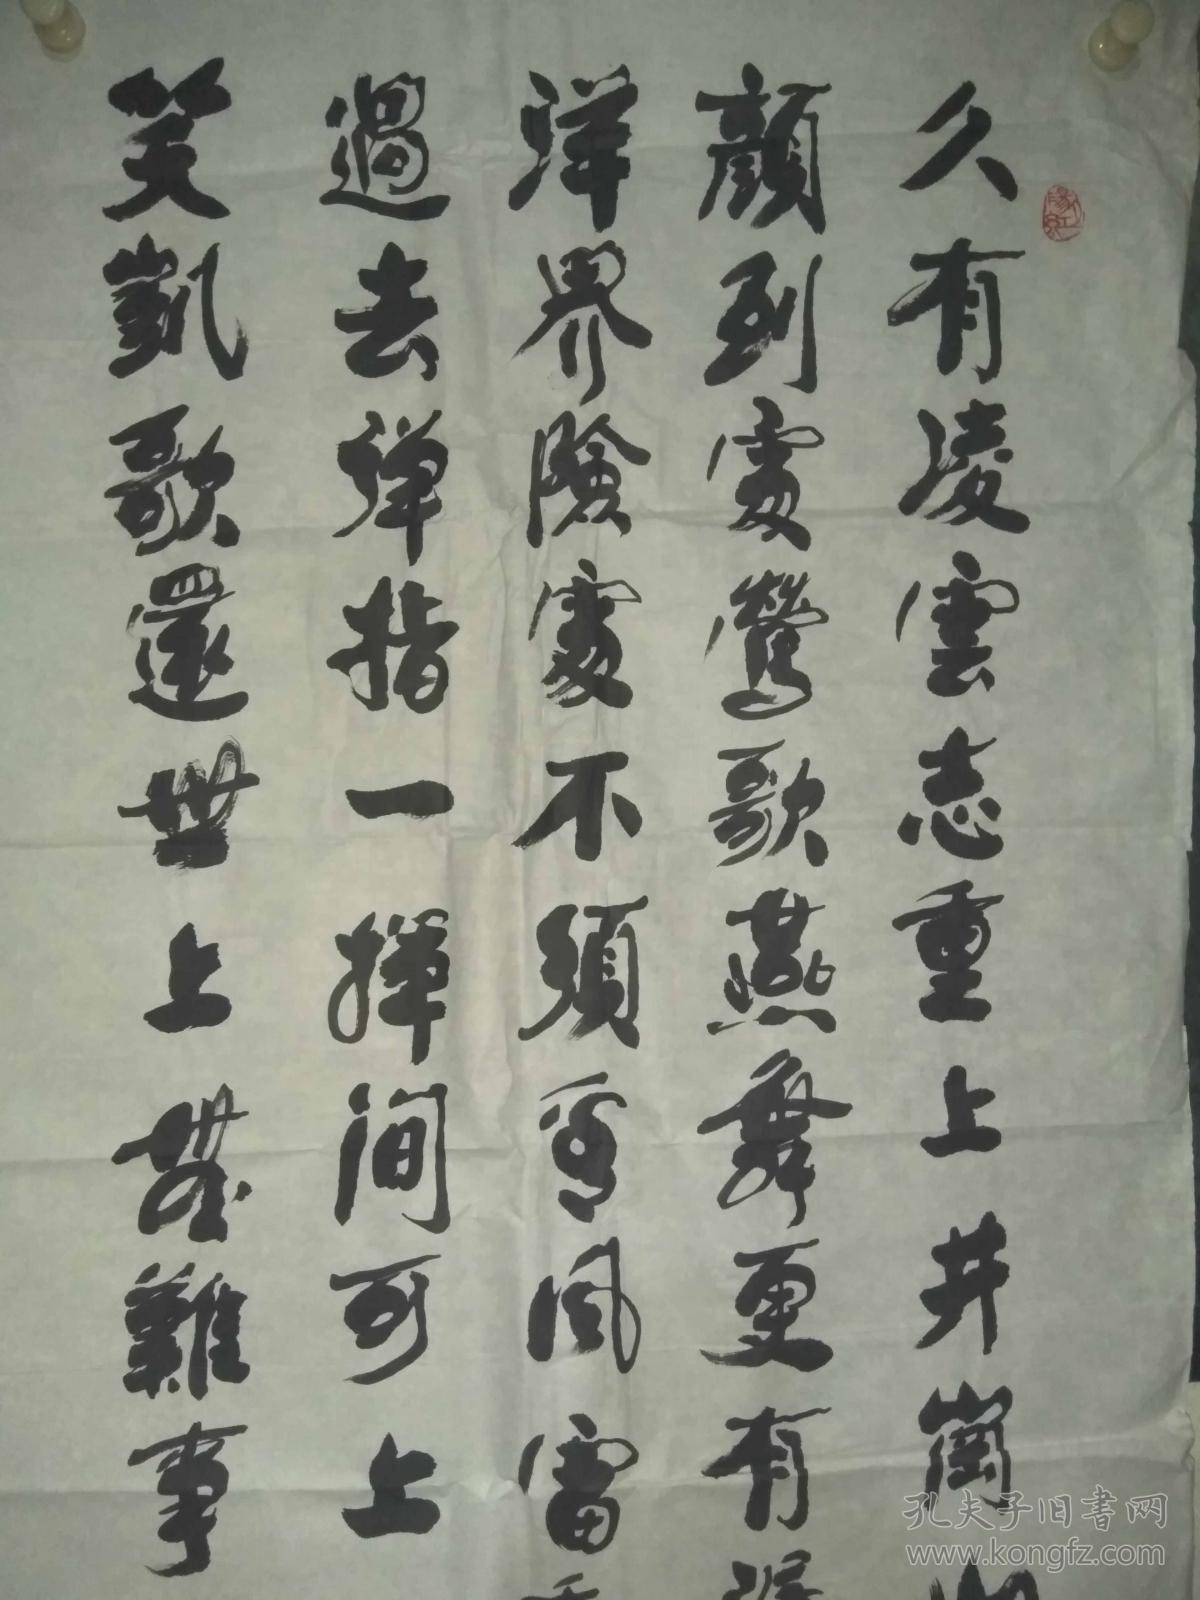 久有凌雲志重上井崗
顏到處鶯歌燕舞更有潺
洋界險處不須看風雷
過去弹指一揮间可上
笑凱歌還世上無難事
孔夫子旧书网
www.kongfz.com